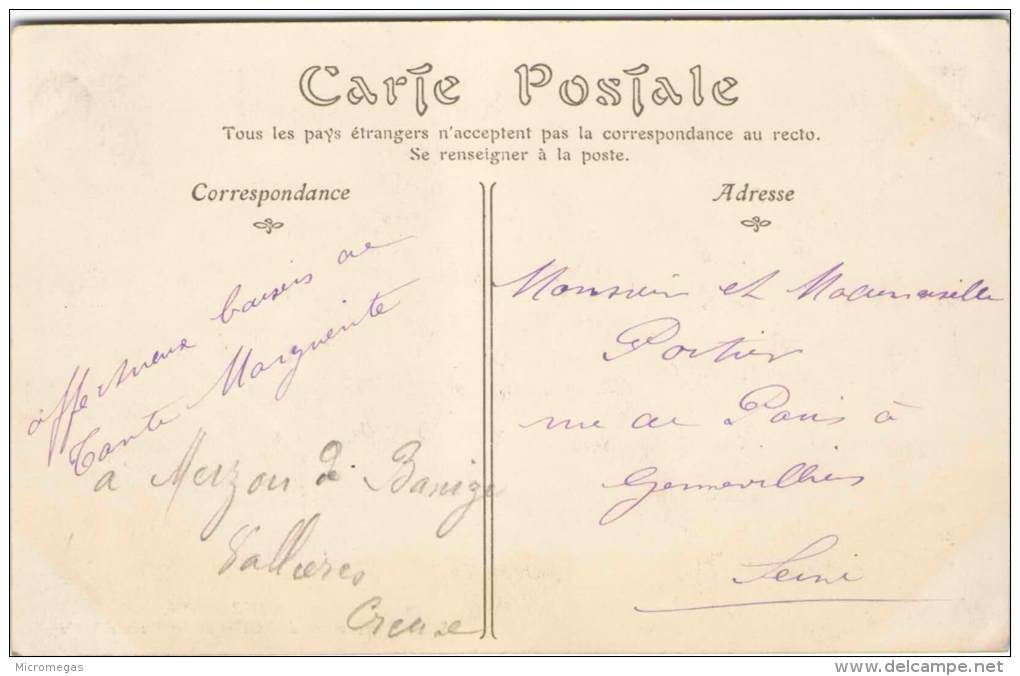 Carte Postale
Tous les pays étrangers n'acceptent pas la correspondance au recto.
Se renseigner à la poste.
Correspondance
affectueux baisers de
Tante Marguerite
à Merzou de Banize
Vallières
Creuse
Adresse
Monsieur et Mademoiselle
Portier
rue de Paris à
Gennevilliers
Seine
Micromegas
www.delcampe.net